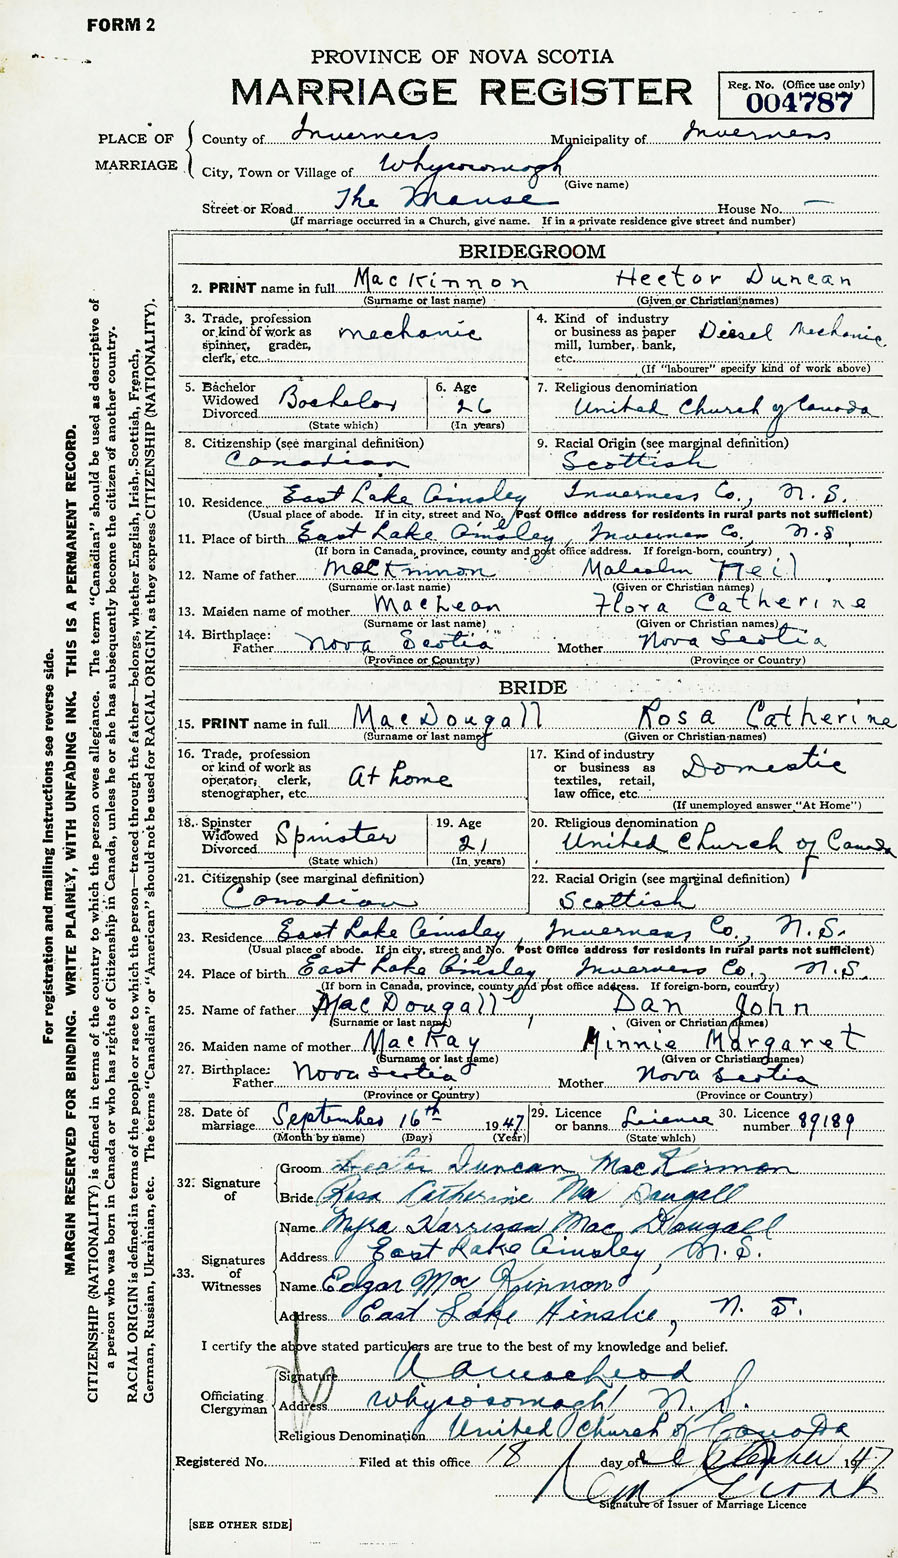 FORM 2
PROVINCE OF NOVA SCOTIA
MARRIAGE REGISTER
Reg. No. (Office use only)
004787
PLACE OF MARRIAGE
County of Inverness Municipality of Inverness
City, Town or Village of Whycocomagh
(Give name)
Street or Road The Manse House No. —
(If marriage occurred in a Church, give name. If in a private residence give street and number)
BRIDEGROOM
2. PRINT name in full MacKinnon Hector Duncan
(Surname or last name) (Given or Christian names)
3. Trade, profession or kind of work as spinner, grader, clerk, etc. mechanic
4. Kind of industry or business as paper mill, lumber, bank, etc. Diesel Mechanic
(If "labourer" specify kind of work above)
5. Bachelor Widowed Divorced Bachelor
(State which)
6. Age 26
(In years)
7. Religious denomination
United Church of Canada
8. Citizenship (see marginal definition)
Canadian
9. Racial Origin (see marginal definition)
Scottish
10. Residence East Lake Ainsley Inverness Co., N.S.
(Usual place of abode. If in city, street and No. Post Office address for residents in rural parts not sufficient)
11. Place of birth East Lake Ainsley, Inverness Co., N.S.
(If born in Canada, province, county and post office address. If foreign-born, country)
12. Name of father MacKinnon Malcolm Neil
(Surname or last name) (Given or Christian names)
13. Maiden name of mother MacLean Flora Catherine
(Surname or last name) (Given or Christian names)
14. Birthplace: Father Nova Scotia Mother Nova Scotia
(Province or Country) (Province or Country)
BRIDE
15. PRINT name in full MacDougall Rosa Catherine
(Surname or last name) (Given or Christian names)
16. Trade, profession or kind of work as operator, clerk, stenographer, etc. At home
17. Kind of industry or business as textiles, retail, law office, etc. Domestic
(If unemployed answer "At Home")
18. Spinster Widowed Divorced Spinster
(State which)
19. Age 21
(In years)
20. Religious denomination
United Church of Canada
21. Citizenship (see marginal definition)
Canadian
22. Racial Origin (see marginal definition)
Scottish
23. Residence East Lake Ainsley Inverness Co., N.S.
(Usual place of abode. If in city, street and No. Post Office address for residents in rural parts not sufficient)
24. Place of birth East Lake Ainsley, Inverness Co., N.S.
(If born in Canada, province, county and post office address. If foreign-born, country)
25. Name of father MacDougall, Dan John
(Surname or last name) (Given or Christian names)
26. Maiden name of mother MacKay Minnie Margaret
(Surname or last name) (Given or Christian names)
27. Birthplace: Father Nova Scotia Mother Nova Scotia
(Province or Country) (Province or Country)
28. Date of marriage September 16th 1947
(Month by name) (Day) (Year)
29. Licence or banns Licence
(State which)
30. Licence number 89189
32. Signature of
Groom Hector Duncan MacKinnon
Bride Rosa Catherine MacDougall
33. Signatures of Witnesses
Name Myra Harrison MacDougall
Address East Lake Ainsley, N.S.
Name Edgar MacKinnon
Address East Lake Ainslie, N.S.
I certify the above stated particulars are true to the best of my knowledge and belief.
Officiating Clergyman
Signature
Address Whycocomagh, N.S.
Religious Denomination United Church of Canada
Registered No. Filed at this office 18 day of September 1947
Signature of Issuer of Marriage Licence
[SEE OTHER SIDE]
For registration and mailing instructions see reverse side.
MARGIN RESERVED FOR BINDING. WRITE PLAINLY, WITH UNFADING INK. THIS IS A PERMANENT RECORD.
CITIZENSHIP (NATIONALITY) is defined in terms of the country to which the person owes allegiance. The term "Canadian" should be used as descriptive of
a person who was born in Canada or who has rights of Citizenship in Canada, unless he or she has subsequently become the citizen of another country.
RACIAL ORIGIN is defined in terms of the people or race to which the person—traced through the father—belongs, whether English, Irish, Scottish, French,
German, Russian, Ukrainian, etc. The terms "Canadian" or "American" should not be used for RACIAL ORIGIN, as they express CITIZENSHIP (NATIONALITY).